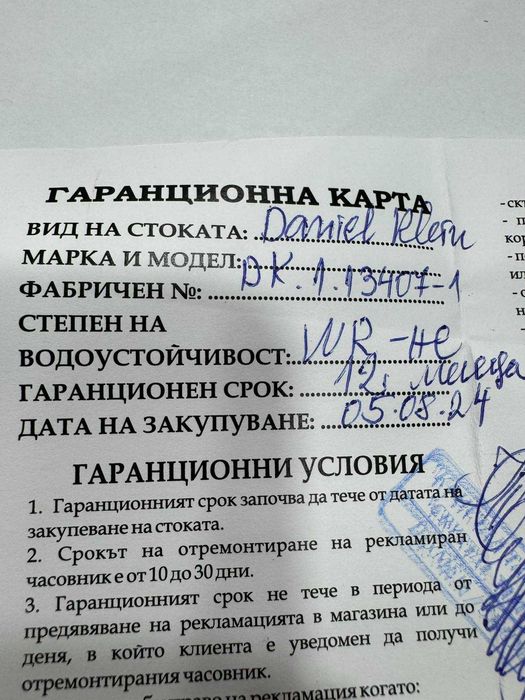 ГАРАНЦИОННА КАРТА
ВИД НА СТОКАТА: Daniel Klein
МАРКА И МОДЕЛ: DK.1.13407-1
ФАБРИЧЕН №:
СТЕПЕН НА
ВОДОУСТОЙЧИВОСТ: WR-не
ГАРАНЦИОНЕН СРОК: 12 месеца
ДАТА НА ЗАКУПУВАНЕ: 05.08.24
ГАРАНЦИОННИ УСЛОВИЯ
1. Гаранционният срок започва да тече от датата на
закупеване на стоката.
2. Срокът на отремонтиране на рекламиран
часовник е от 10 до 30 дни.
3. Гаранционният срок не тече в периода от
предявяване на рекламацията в магазина или до
деня, в който клиента е уведомен да получи
отремонтирания часовник.
на рекламация когато: